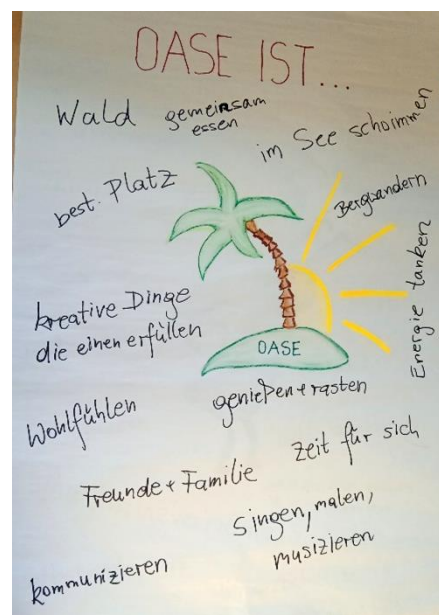 OASE IST...
Wald
gemeinsam
essen
im See schwimmen
best. Platz
Bergwandern
Energie tanken
kreative Dinge
die einen erfüllen
OASE
genießen + rasten
Wohlfühlen
Zeit für sich
Freunde + Familie
singen, malen,
musizieren
kommunizieren